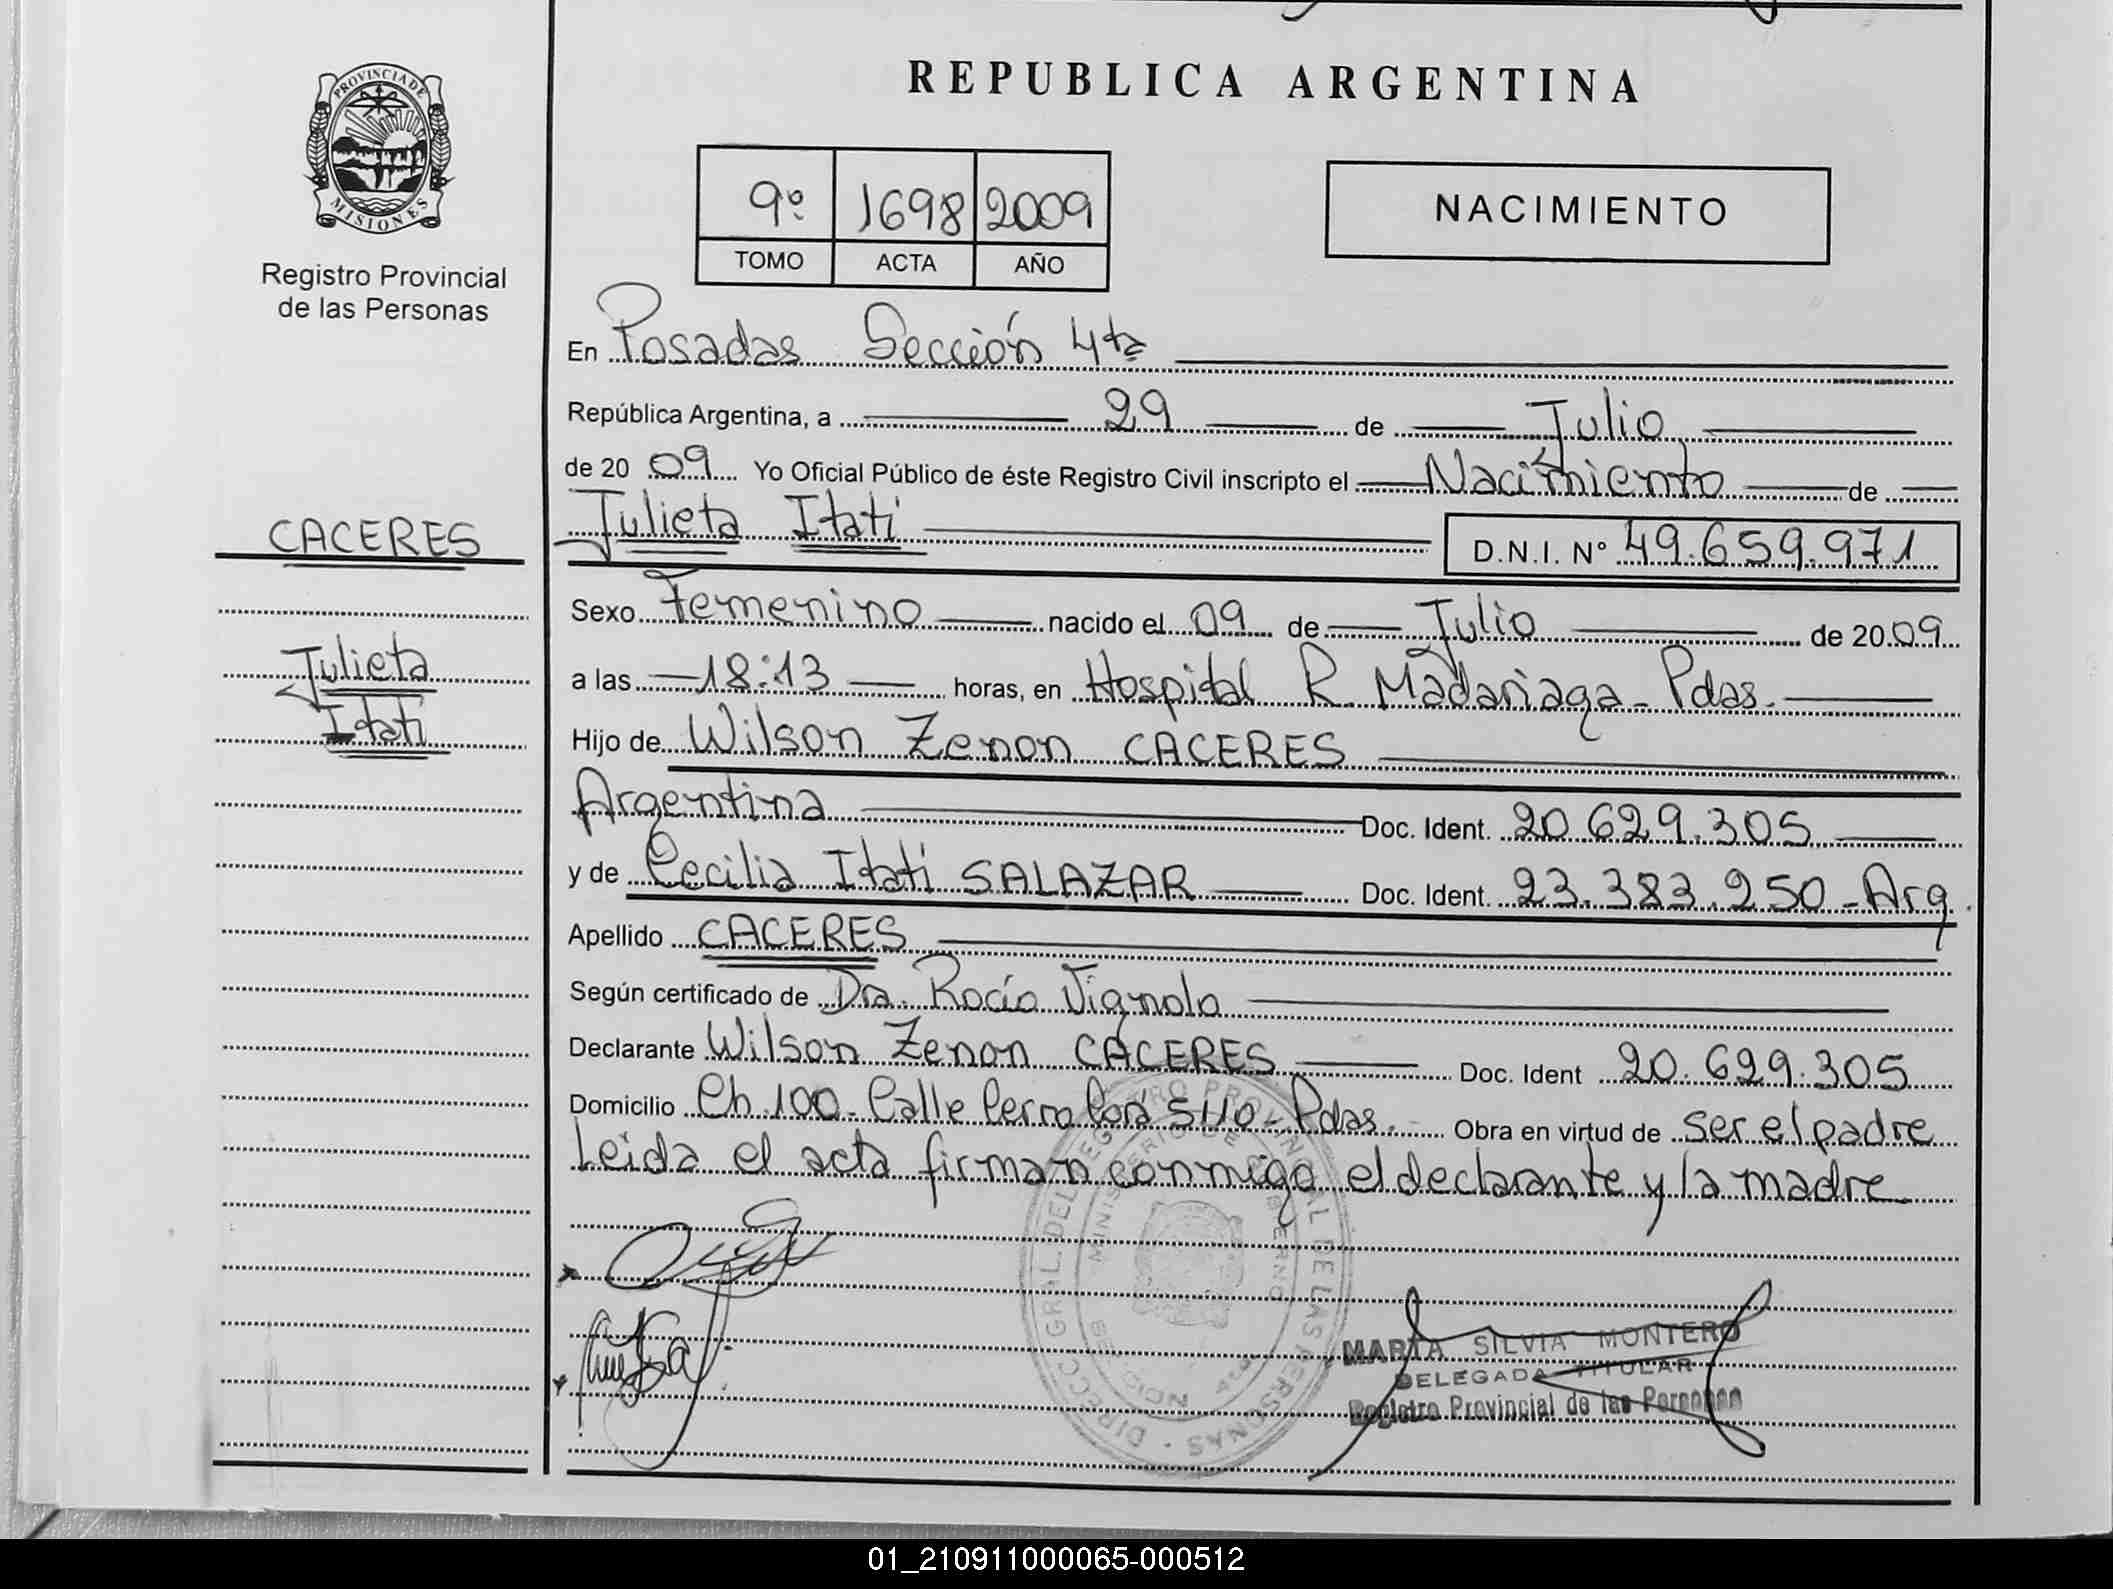 REPUBLICA ARGENTINA
PROVINCIA DE
MISIONES
Registro Provincial
de las Personas
9º 1698 2009
TOMO ACTA AÑO
NACIMIENTO
En Posadas Sección 4ta
República Argentina, a 29 de Julio
de 20 09 Yo Oficial Público de éste Registro Civil inscripto el Nacimiento de
Julieta Itati D.N.I. Nº 49.659.971
CACERES
Julieta
Itati
Sexo Femenino nacido el 09 de Julio de 20 09
a las 18:13 horas, en Hospital R. Madariaga - Pdas.
Hijo de Wilson Zenon CACERES
Argentina Doc. Ident. 20.629.305
y de Cecilia Itati SALAZAR Doc. Ident. 23.383.250 - Arg.
Apellido CACERES
Según certificado de Dra. Rocío Vignolo
Declarante Wilson Zenon CACERES Doc. Ident 20.629.305
Domicilio Ch. 100 - Calle Cerro Corá 5110 - Pdas. Obra en virtud de ser el padre
Leida el acta firman conmigo el declarante y la madre
MARTA SILVIA MONTERO
DELEGADA TITULAR
Registro Provincial de las Personas
01_210911000065-000512